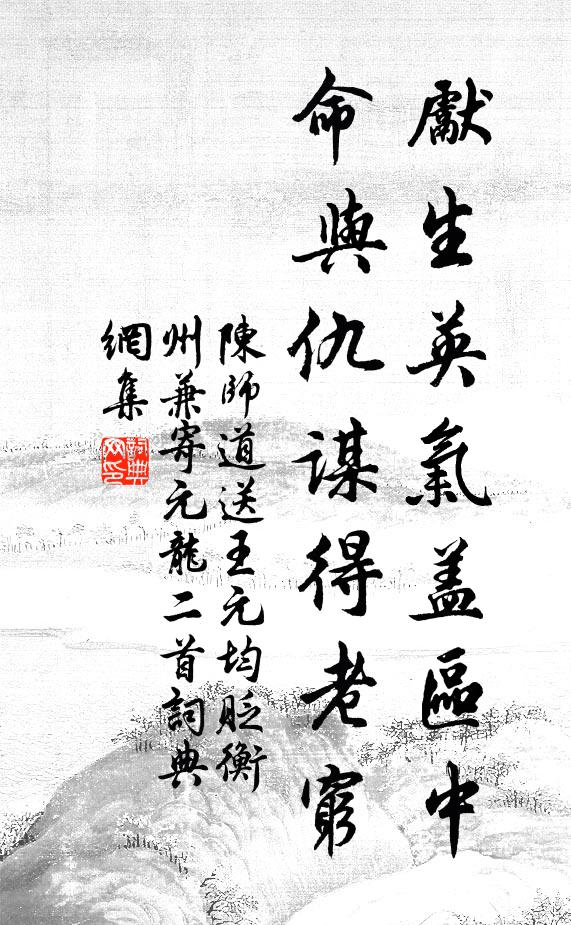 獻生英氣蓋區中
命與仇謀得老窮
陳師道送王元均貶衡
州兼寄元龍二首詞典
網集
詞典
网印